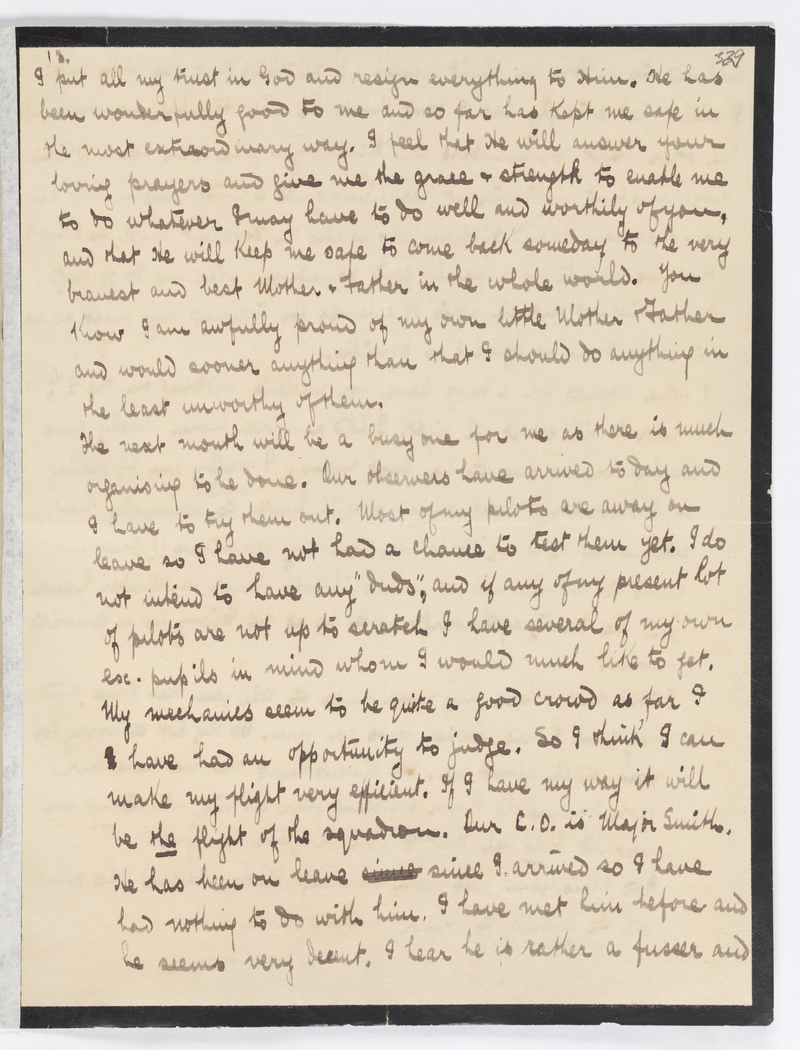 13. 329
I put all my trust in God and resign everything to Him. He has
been wonderfully good to me and so far has kept me safe in
the most extraordinary way. I feel that He will answer your
loving prayers and give me the grace & strength to enable me
to do whatever I may have to do well and worthily of you,
and that He will keep me safe to come back someday to the very
bravest and best Mother & Father in the whole world. You
know I am awfully proud of my own little Mother & Father
and would sooner anything than that I should do anything in
the least unworthy of them.
The next month will be a busy one for me as there is much
organising to be done. Our observers have arrived today and
I have to try them out. Most of my pilots are away on
leave so I have not had a chance to test them yet. I do
not intend to have any "duds", and if any of my present lot
of pilots are not up to scratch I have several of my own
esc. pupils in mind whom I would much like to get.
My mechanics seem to be quite a good crowd as far I
have had an opportunity to judge. So I think I can
make my flight very efficient. If I have my way it will
be the flight of the squadron. Our C.O. is Major Smith.
He has been on leave since since I arrived so I have
had nothing to do with him. I have met him before and
he seems very decent. I hear he is rather a fusser and